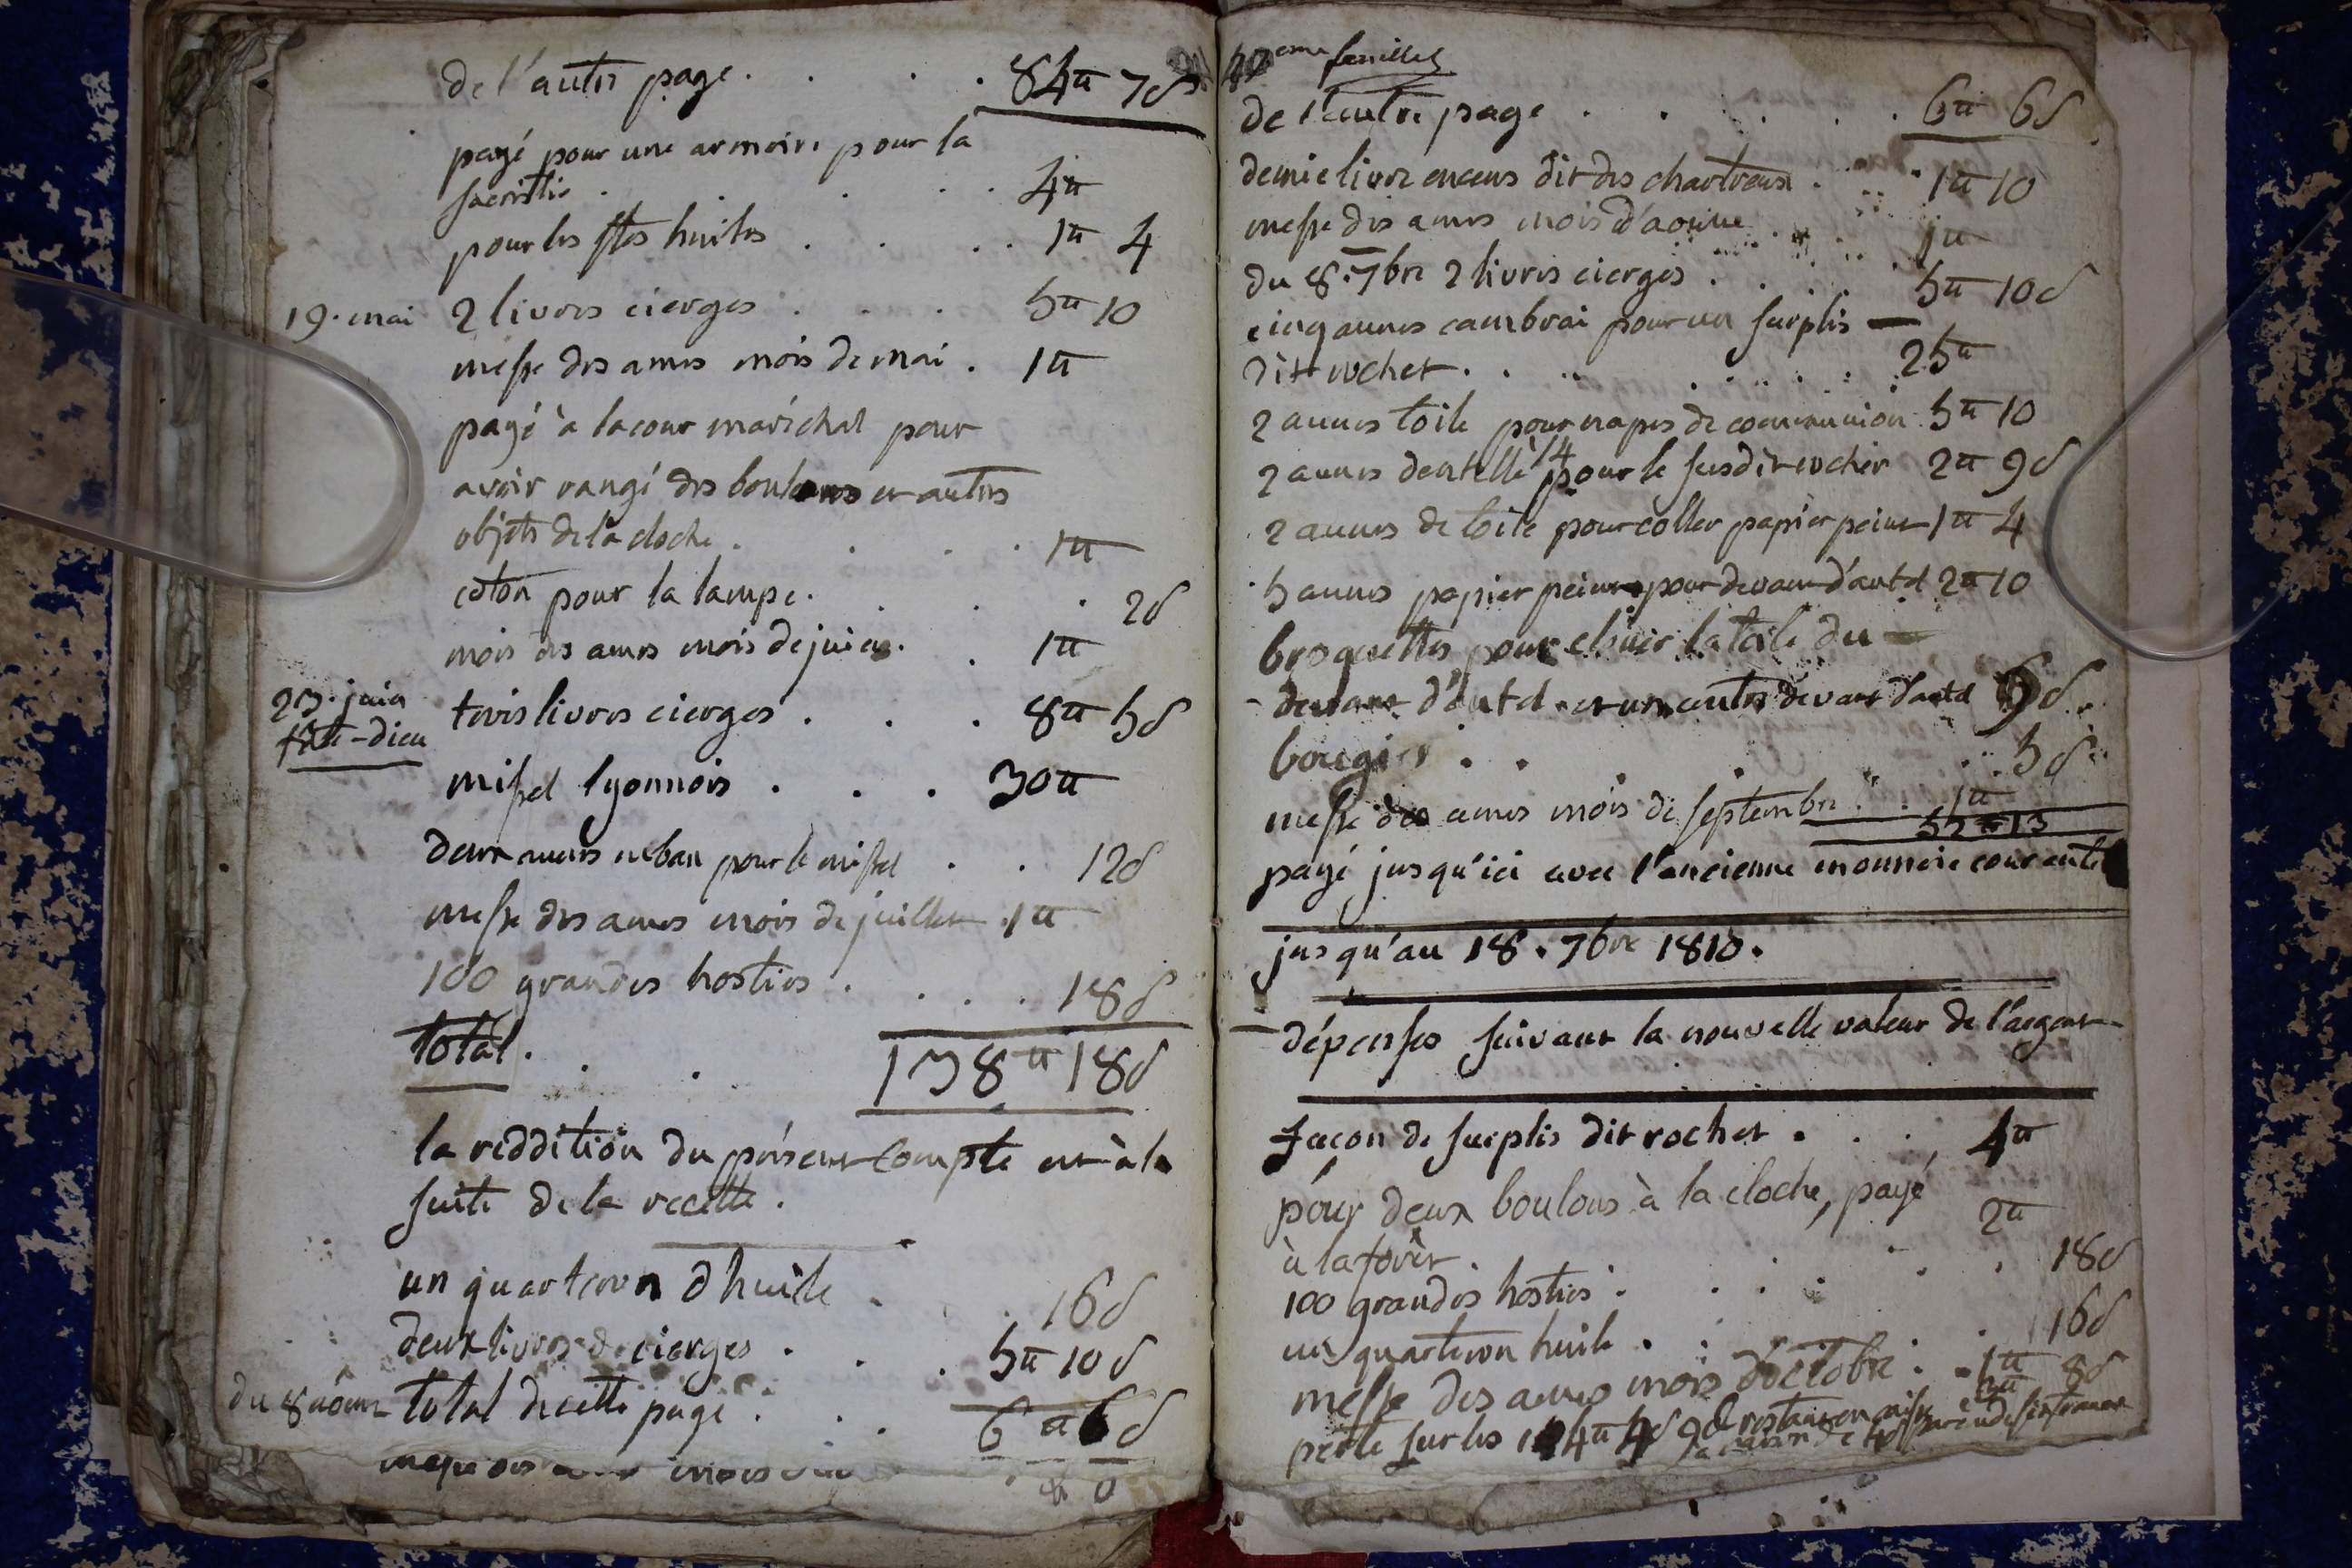 de l'autre page . . . . 84ᵗᵗ 7s
payé pour une armoire pour la
sacristie . . . . 4ᵗᵗ
pour les stes huiles . . . . 1ᵗᵗ 4
19. mai 2 livres cierges . . . 5ᵗᵗ 10
messe des ames mois de mai . 1ᵗᵗ
payé à lacour maréchal pour
avoir rangé des boulons et autres
objets de la cloche . . . . 1ᵗᵗ
coton pour la lampe . . . . 2s
mois des ames mois de juin . . 1ᵗᵗ
23. juin trois livres cierges . . . 8ᵗᵗ 5s
fête-dieu
missel lyonnois . . . 30ᵗᵗ
deux aunes ruban pour le missel . . 12s
messe des ames mois de juillet . 1ᵗᵗ
100 grandes hosties . . . . 18s
total . . . 138ᵗᵗ 18s
la reddition du présent compte est à la
suite de la recette .
un quarteron d'huile . . 16s
deux livres de cierges . . . 5ᵗᵗ 10s
du 8 août total de cette page . . . 6ᵗᵗ 6s
messe des mois
feuillet
de l'autre page . . . . . 6ᵗᵗ 6s
demie livre encens dit des chartreux . . . 1ᵗᵗ 10
messe des ames mois d'aout . . . 1ᵗᵗ
du 8. 7bre 2 livres cierges . . . 5ᵗᵗ 10s
cinq aunes cambrai pour un surplis —
dit rochet . . . . . . . 25ᵗᵗ
2 aunes toile pour napes de communion . 5ᵗᵗ 10
2 aunes dentelle 1/4 pour le susdit rochet 2ᵗᵗ 9s
2 aunes de toile pour coller papier peint 1ᵗᵗ 4
5 aunes papier peint pour devant d'autel 2ᵗᵗ 10
broquettes pour clouer la toile du —
- devant d'autel et un autre devant d'autel 9s .
bougies . . . . . 5s
messe des ames mois de septembre . . 1ᵗᵗ
52ᵗᵗ 13
payé jusqu'ici avec l'ancienne monnoie courante
jusqu'au 18. 7bre 1810.
dépenses suivant la nouvelle valeur de l'argent
façon de surplis dit rochet . . . 4ᵗᵗ
pour deux boulons à la cloche, payé
à laforêt . . . 2ᵗᵗ
100 grandes hosties . . . . . 18s
un quarteron huile . . . . 16s
messe des ames mois d'octobre . - 1ᵗᵗ 8s
perte sur les